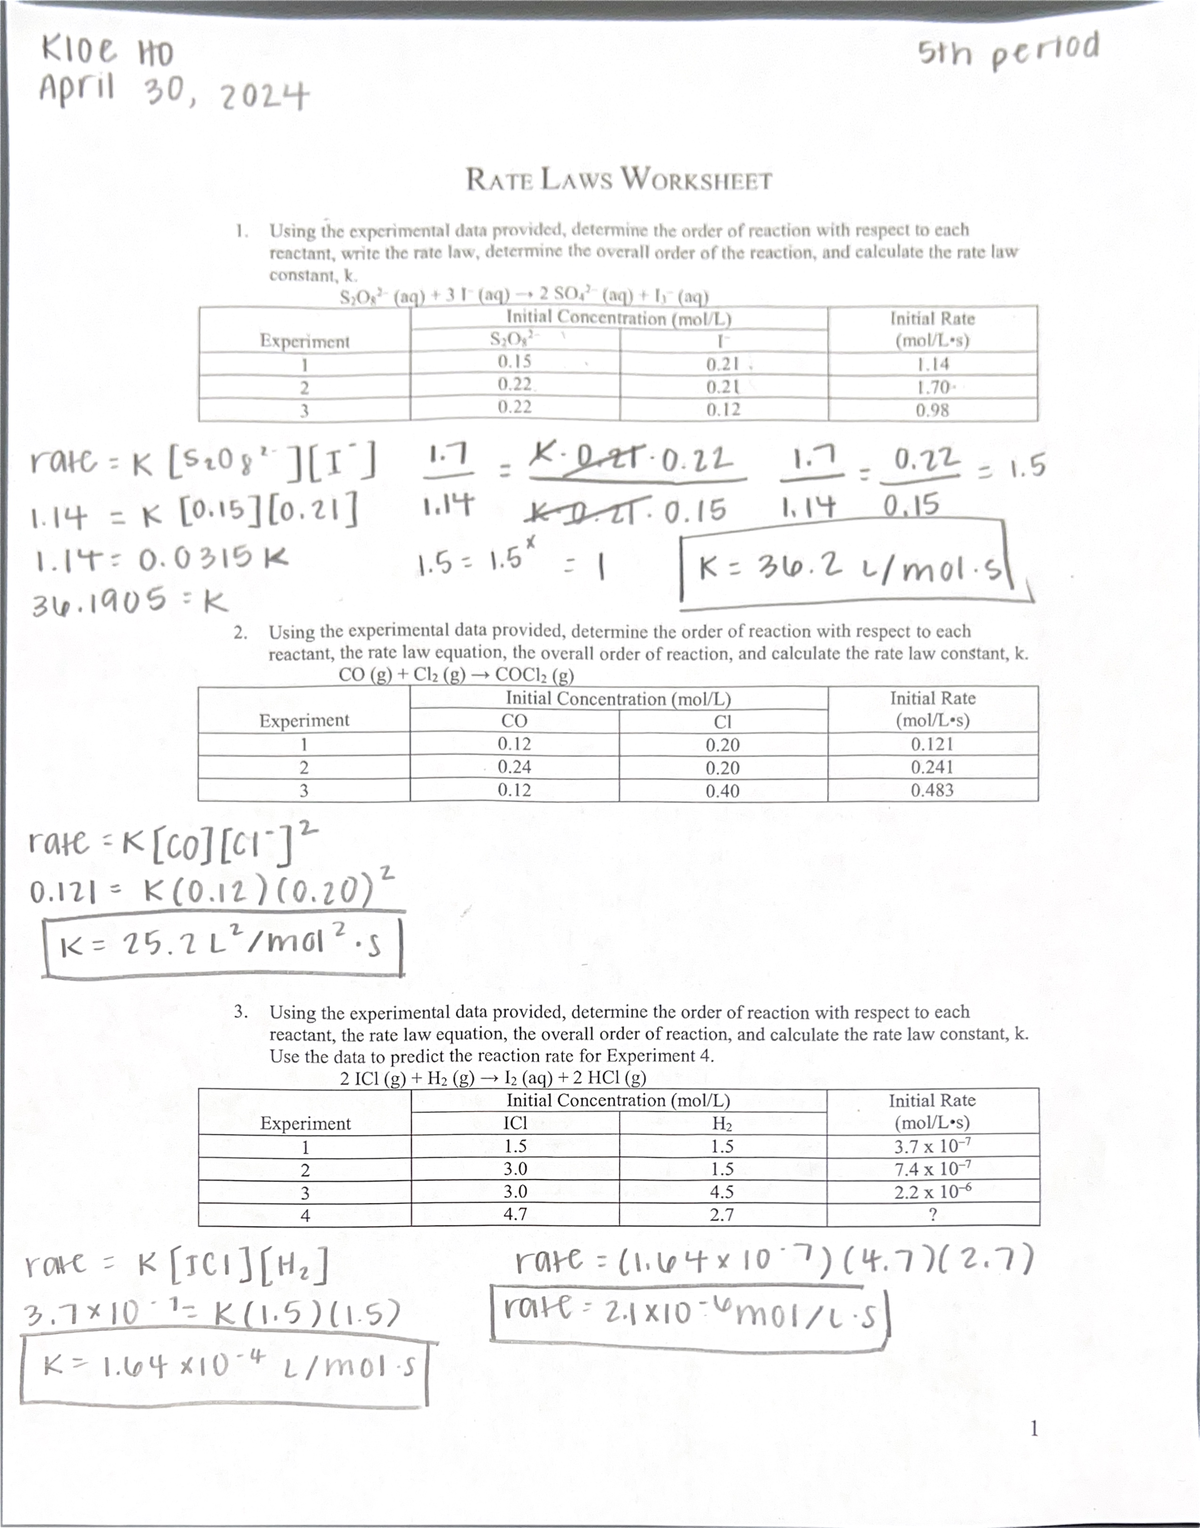 Kloe Ho
5th period
April 30, 2024
RATE LAWS WORKSHEET
1. Using the experimental data provided, determine the order of reaction with respect to each
reactant, write the rate law, determine the overall order of the reaction, and calculate the rate law
constant, k.
S₂O₈²⁻ (aq) + 3 I⁻ (aq) → 2 SO₄²⁻ (aq) + I₃⁻ (aq)
Experiment Initial Concentration (mol/L) Initial Rate (mol/L•s)
S₂O₈²⁻ I⁻
1 0.15 0.21 1.14
2 0.22 0.21 1.70
3 0.22 0.12 0.98
rate = K [S₂O₈²⁻][I⁻]
1.14 = K [0.15][0.21]
1.14 = 0.0315 K
36.1905 = K
1.7/1.14 = K · 0.21 · 0.22 / K · 0.21 · 0.15
1.7/1.14 = 0.22/0.15 = 1.5
1.5 = 1.5ˣ = 1
K = 36.2 L/mol·s
2. Using the experimental data provided, determine the order of reaction with respect to each
reactant, the rate law equation, the overall order of reaction, and calculate the rate law constant, k.
CO (g) + Cl₂ (g) → COCl₂ (g)
Experiment Initial Concentration (mol/L) Initial Rate (mol/L•s)
CO Cl
1 0.12 0.20 0.121
2 0.24 0.20 0.241
3 0.12 0.40 0.483
rate = K[CO][Cl⁻]²
0.121 = K(0.12)(0.20)²
K = 25.2 L²/mol²·s
3. Using the experimental data provided, determine the order of reaction with respect to each
reactant, the rate law equation, the overall order of reaction, and calculate the rate law constant, k.
Use the data to predict the reaction rate for Experiment 4.
2 ICl (g) + H₂ (g) → I₂ (aq) + 2 HCl (g)
Experiment Initial Concentration (mol/L) Initial Rate (mol/L•s)
ICl H₂
1 1.5 1.5 3.7 x 10⁻⁷
2 3.0 1.5 7.4 x 10⁻⁷
3 3.0 4.5 2.2 x 10⁻⁶
4 4.7 2.7 ?
rate = K[ICl][H₂]
3.7×10⁻⁷ = K(1.5)(1.5)
K = 1.64 ×10⁻⁴ L/mol·s
rate = (1.64 × 10⁻⁷)(4.7)(2.7)
rate = 2.1×10⁻⁶ mol/L·s
1